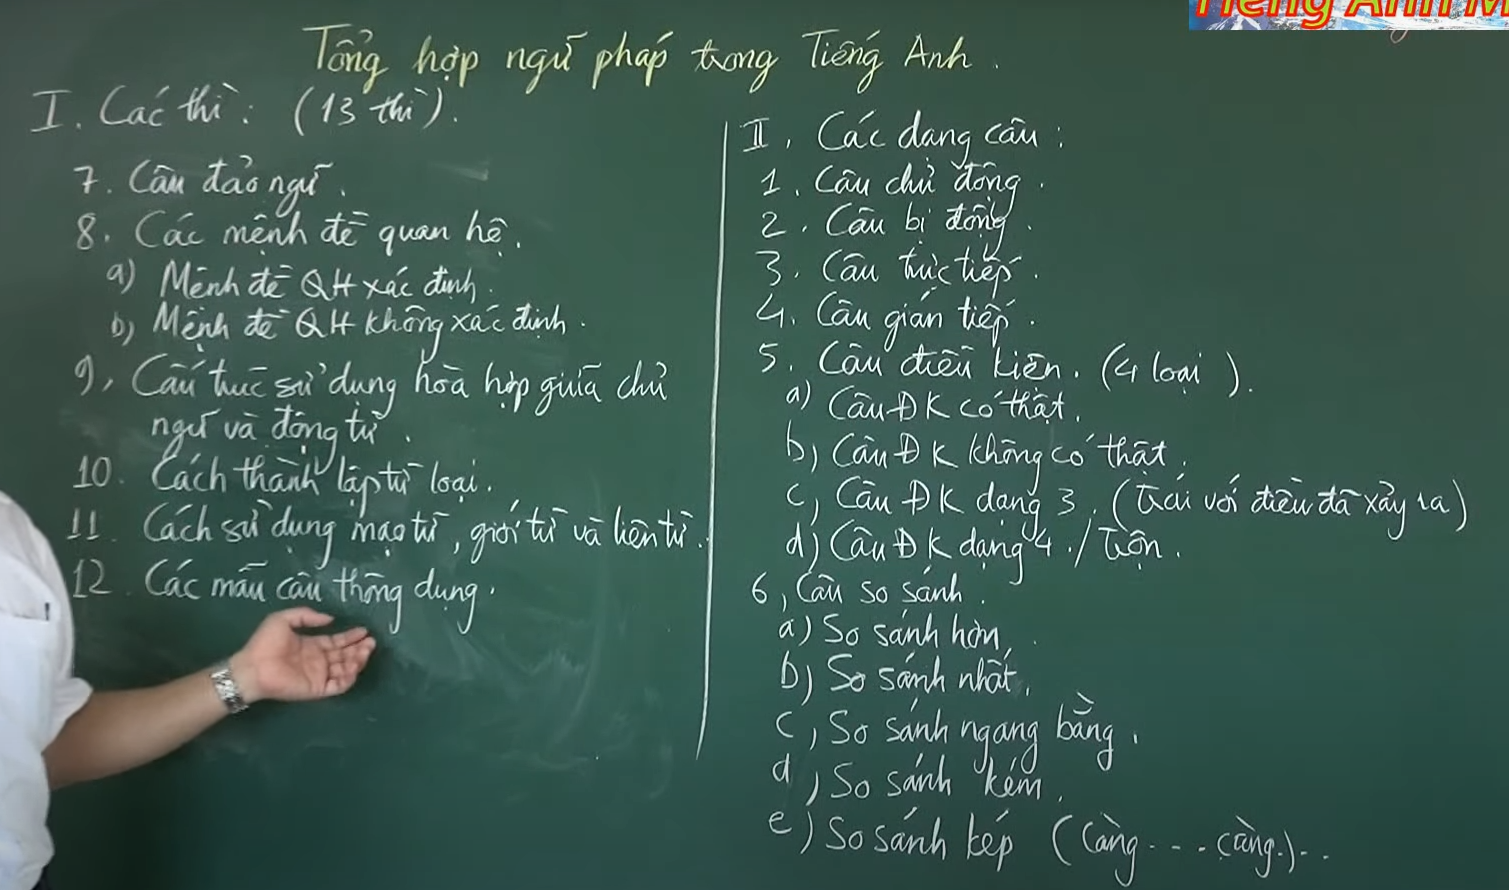 Tiếng Anh M
Tổng hợp ngữ pháp trong Tiếng Anh.
I. Các thì: (13 thì).
7. Câu đảo ngữ.
8. Các mệnh đề quan hệ.
a) Mệnh đề QH xác định.
b) Mệnh đề QH không xác định.
9, Cấu trúc sử dụng hòa hợp giữa chủ
ngữ và động từ.
10. Cách thành lập từ loại.
11. Cách sử dụng mạo từ, giới từ và liên từ.
12. Các mẫu câu thông dụng.
II. Các dạng câu:
1. Câu chủ động.
2. Câu bị động.
3. Câu trực tiếp.
4. Câu gián tiếp.
5. Câu điều kiện. (4 loại).
a) Câu ĐK có thật.
b) Câu ĐK không có thật.
c, Câu ĐK dạng 3. (Trái với điều đã xảy ra)
d) Câu ĐK dạng 4. / Trộn.
6, Câu so sánh.
a) So sánh hơn.
b) So sánh nhất.
c, So sánh ngang bằng.
d, So sánh kém.
e) So sánh kép (Càng....càng.)..